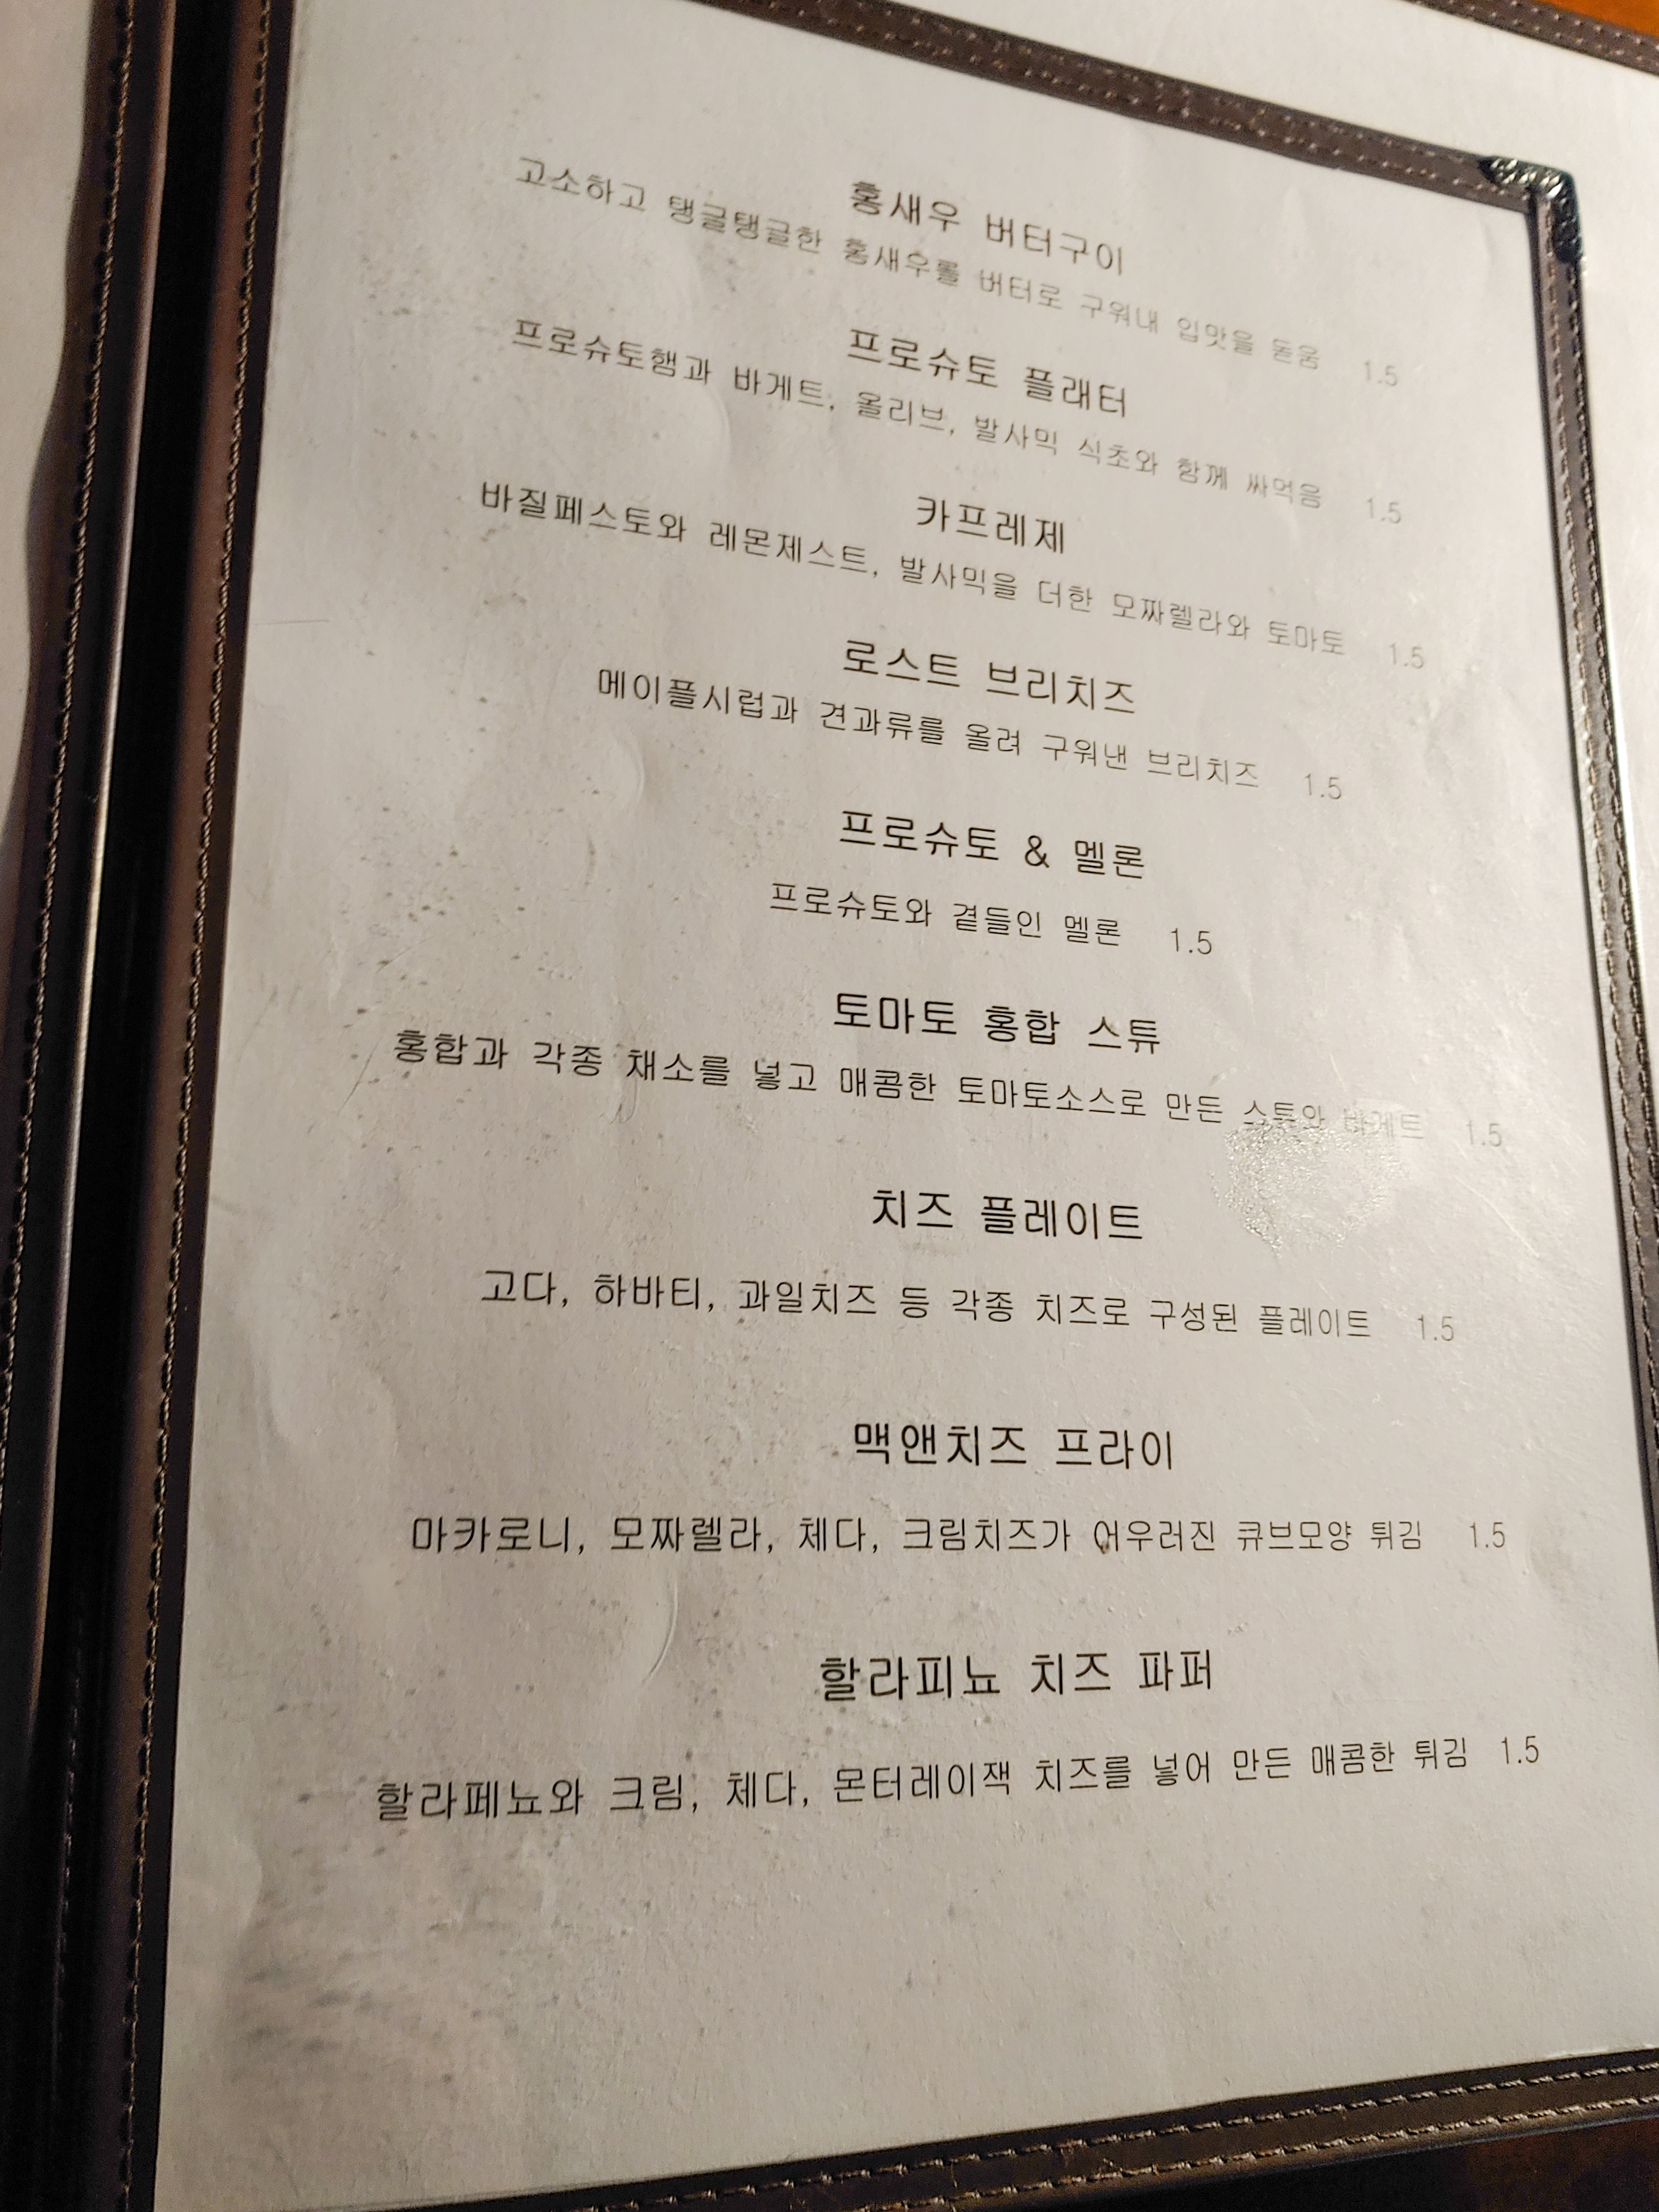 홍새우 버터구이
고소하고 탱글탱글한 홍새우를 버터로 구워내 입맛을 돋움 1.5
프로슈토 플래터
프로슈토햄과 바게트, 올리브, 발사믹 식초와 함께 싸먹음 1.5
카프레제
바질페스토와 레몬제스트, 발사믹을 더한 모짜렐라와 토마토 1.5
로스트 브리치즈
메이플시럽과 견과류를 올려 구워낸 브리치즈 1.5
프로슈토 & 멜론
프로슈토와 곁들인 멜론 1.5
토마토 홍합 스튜
홍합과 각종 채소를 넣고 매콤한 토마토소스로 만든 스튜와 바게트 1.5
치즈 플레이트
고다, 하바티, 과일치즈 등 각종 치즈로 구성된 플레이트 1.5
맥앤치즈 프라이
마카로니, 모짜렐라, 체다, 크림치즈가 어우러진 큐브모양 튀김 1.5
할라피뇨 치즈 파퍼
할라페뇨와 크림, 체다, 몬터레이잭 치즈를 넣어 만든 매콤한 튀김 1.5